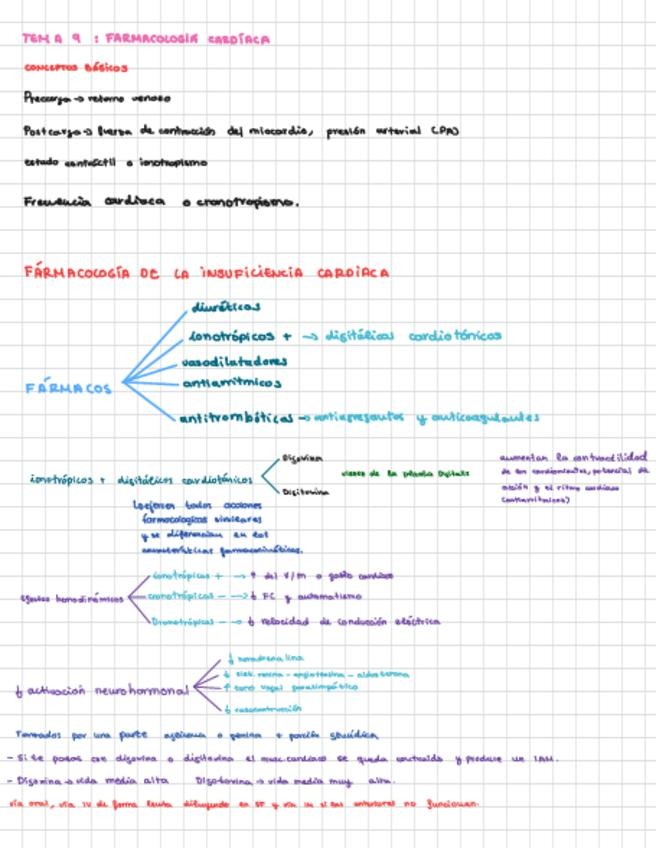 TEMA 9 : FARMACOLOGÍA CARDÍACA
CONCEPTOS BÁSICOS
Precarga → retorno venoso
Postcarga → fuerza de contracción del miocardio, presión arterial (PA)
estado contráctil o ionotropismo
Frecuencia cardíaca o cronotropismo.
FÁRMACOLOGÍA DE LA INSUFICIENCIA CARDÍACA
FÁRMACOS
diuréticos
ionotrópicos + → digitálicos cardiotónicos
vasodilatadores
antiarrítmicos
antitrombóticos → antiagregantes y anticoagulantes
ionotrópicos + digitálicos cardiotónicos
Digoxina
Digitoxina
vienen de la planta Digitalis
aumentan la contractilidad
de los cardiomiocitos, potencial de
acción y el ritmo cardiaco
(antiarrítmicos)
ejercen todos acciones
farmacologicas similares
y se diferencian en sus
características farmacocinéticas.
efectos hemodinámicos
ionotrópicos + → ↑ del V/m o gasto cardiaco
cronotrópicos - → ↓ FC y automatismo
Dromotrópicos - → ↓ velocidad de conducción eléctrica
↓ activación neurohormonal
↓ noradrenalina
↓ renina - angiotensina - aldosterona
↑ tono vagal parasimpático
↓ vasoconstricción
Formados por una parte aglicona o genina + porción glucídica
- Si te pasas con digoxina o digitoxina el musc.cardiaco se queda contraído y produce un IAM.
- Digoxina → vida media alta Digotoxina → vida media muy alta.
vía oral, vía IV de forma lenta diluyendo en SF y vía IM si las anteriores no funcionan.